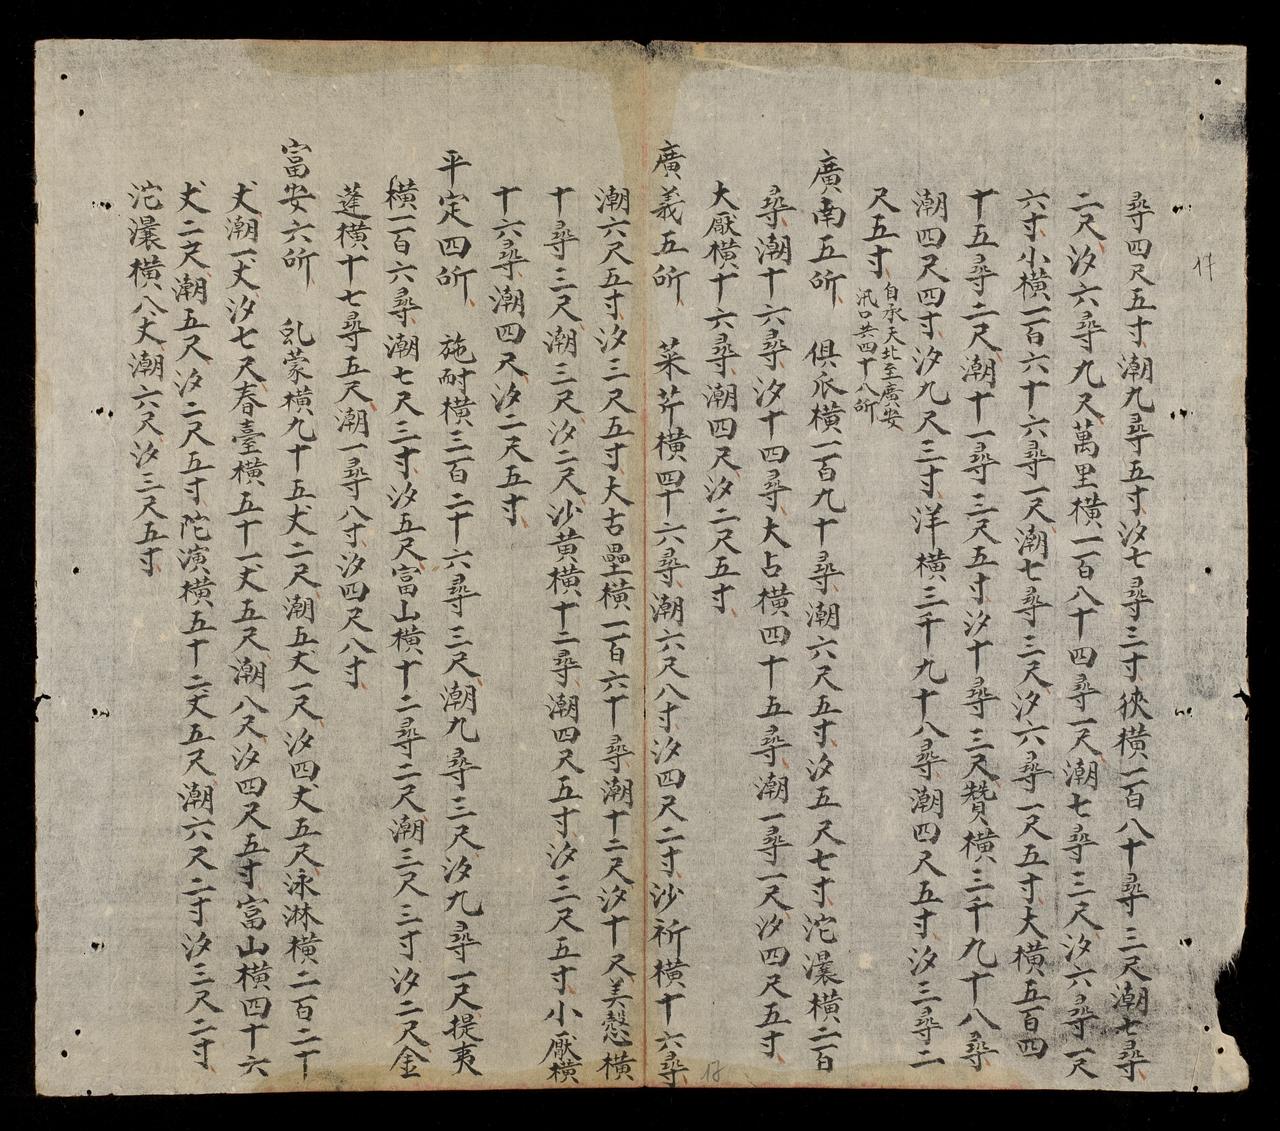 尋四尺五寸潮九尋五寸汐七尋三寸俠橫二百八十尋三尺潮七尋
二尺汐六尋九尺萬里橫一百八十四尋一尺潮七尋三尺汐六尋一尺
六寸小橫一百六十六尋一尺潮七尋三尺汐六尋一尺五寸大橫五百四
十五尋二尺潮十一尋三尺五寸汐十尋三尺贊橫三千九十八尋
潮四尺四寸汐九尺三寸洋橫三千九十八尋潮四尺五寸汐三尋二
尺五寸自承天北至廣安
汛口共四十八所
廣南五所 俱瓜橫一百九十尋潮六尺五寸汐五尺七寸沱灢橫二百
尋潮十六尋汐十四尋大占橫四十五尋潮一尋一尺汐四尺五寸
大厭橫十六尋潮四尺汐二尺五寸
廣義五所 菜芹橫四十六尋潮六尺八寸汐四尺二寸沙祈橫十六尋
潮六尺五寸汐三尺五寸大古壘橫一百六十尋潮十二尺汐十尺美慤橫
十尋三尺潮三尺汐二尺沙黄橫十二尋潮四尺五寸汐三尺五寸小厭橫
十六尋潮四尺汐二尺五寸
平定四所 施耐橫三百二十六尋三尺潮九尋三尺汐九尋一尺提夷
橫一百六尋潮七尺三寸汐五尺富山橫十二尋二尺潮三尺三寸汐二尺金
蓬橫十七尋五尺潮一尋八寸汐四尺八寸
富安六所 虬蒙橫九十五丈二尺潮五丈一尺汐四丈五尺泳淋橫二百二十
丈潮一丈汐七尺春臺橫五十一丈五尺潮八尺汐四尺五寸富山橫四十六
丈二尺潮五尺汐二尺五寸陀演橫五十二丈五尺潮六尺二寸汐三尺二寸
沱灢橫八丈潮六尺汐三尺五寸
17